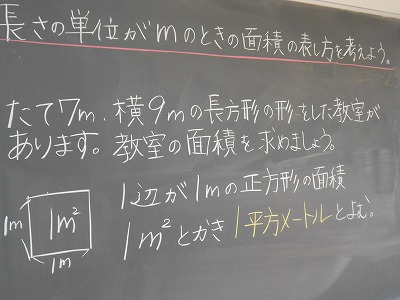 長さの単位がmのときの面積の表し方を考えよう。
たて7m、横9mの長方形の形をした教室が
あります。教室の面積を求めましょう。
1辺が1mの正方形の面積
1m²とかき 1平方メートルとよむ。
1m
1m²
1m